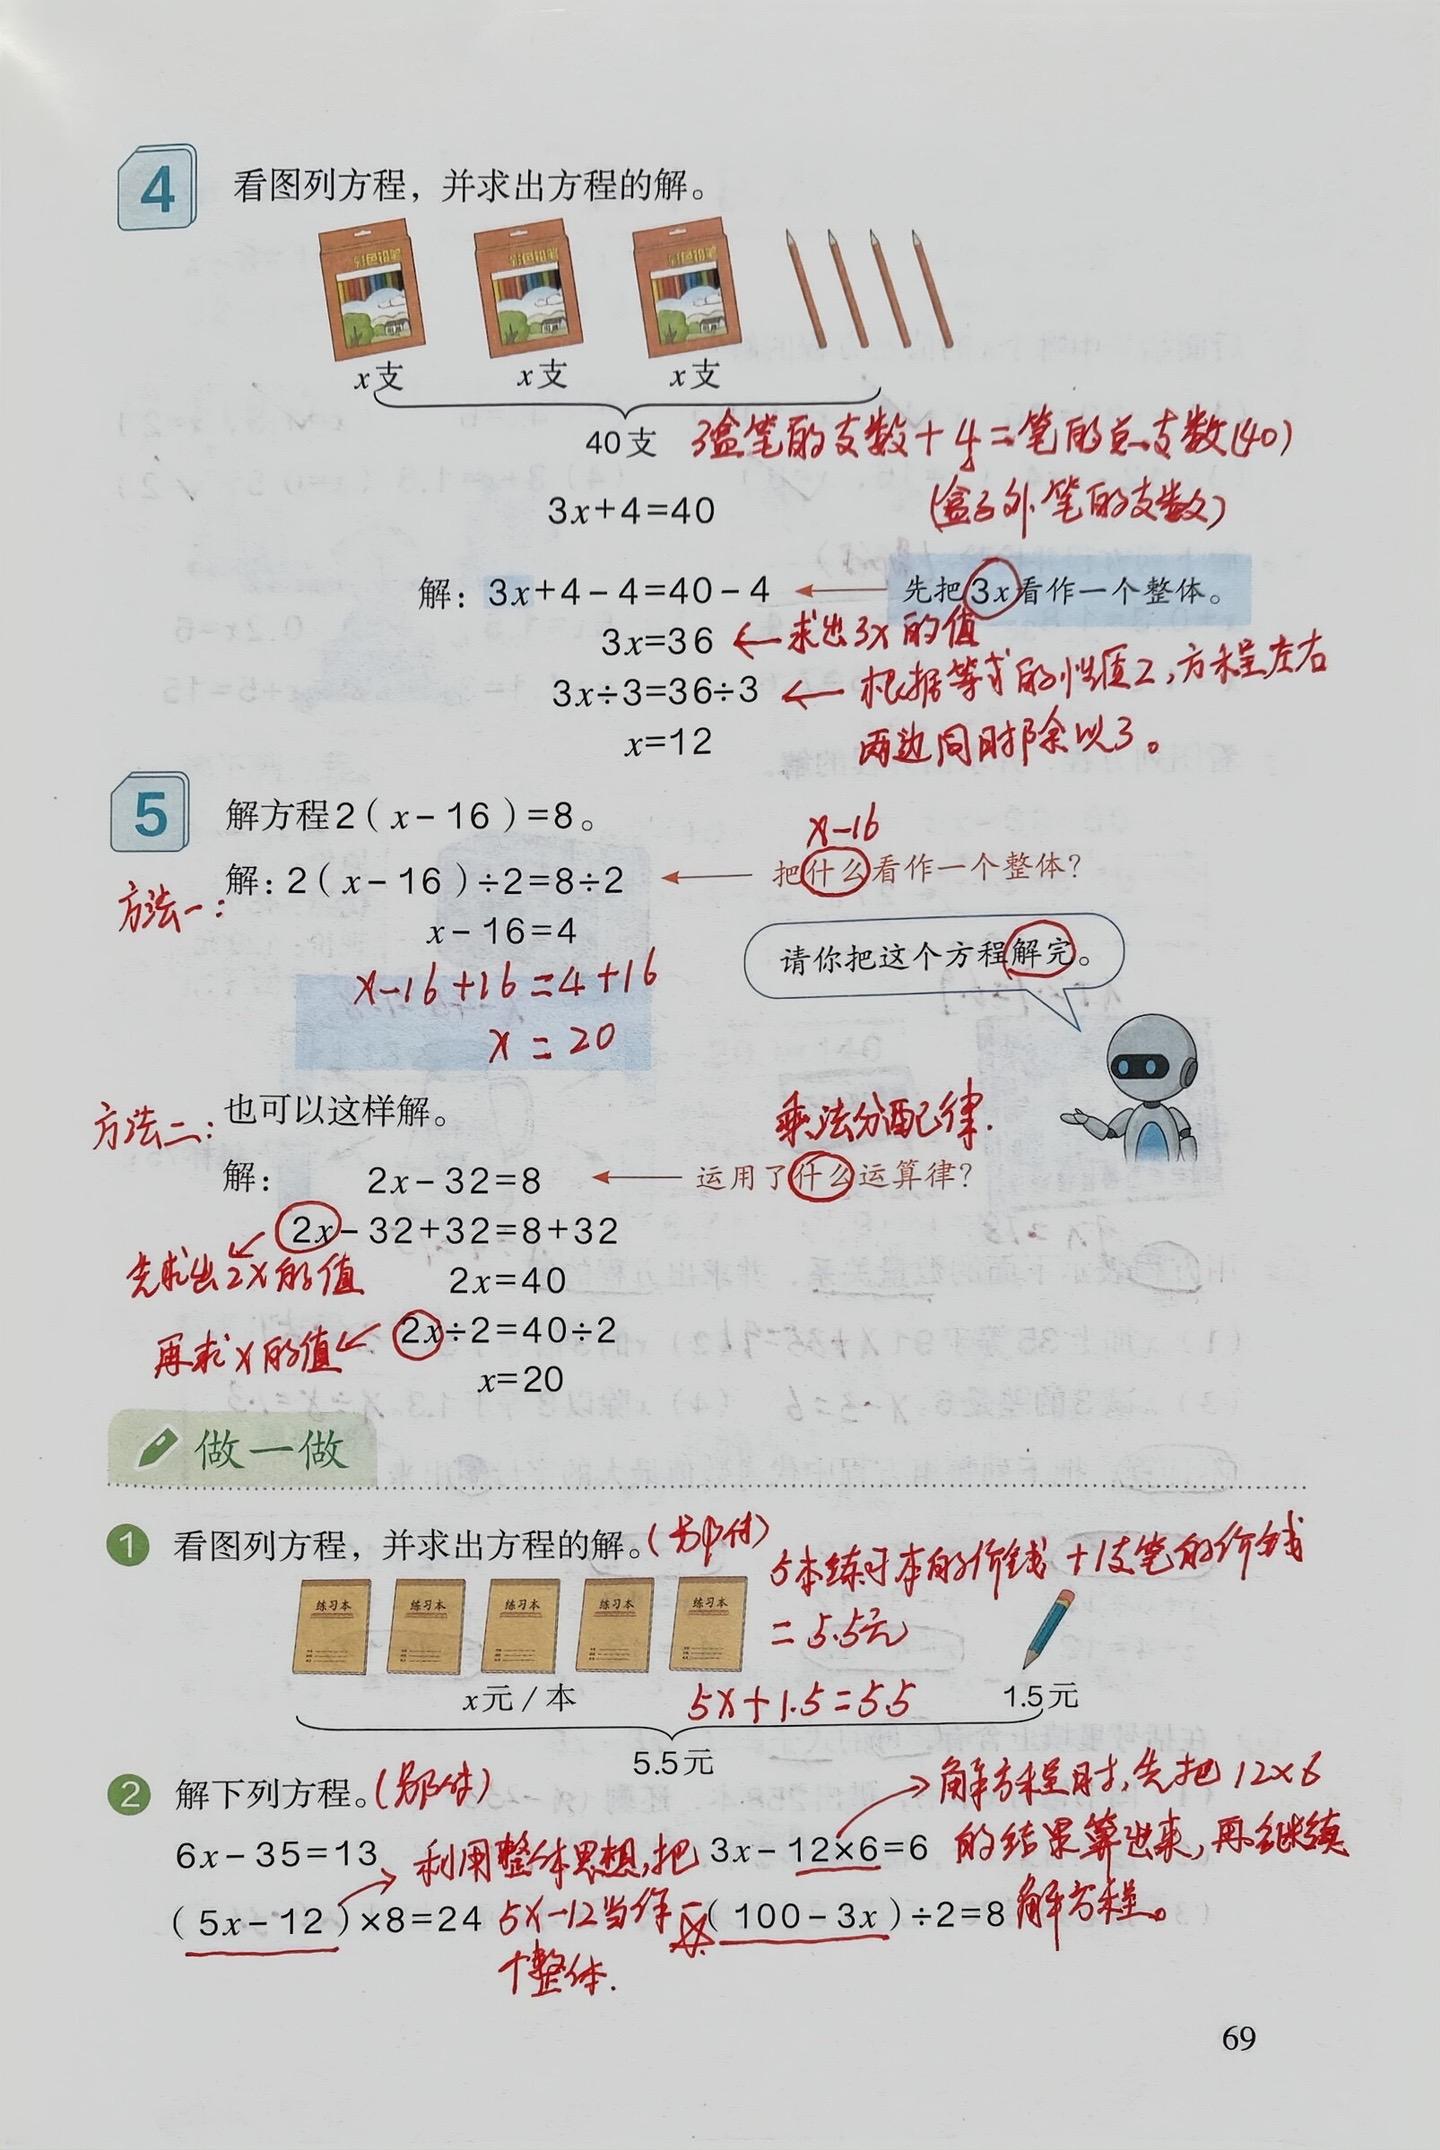 4 看图列方程，并求出方程的解。
彩色铅笔 彩色铅笔 彩色铅笔
x支 x支 x支
40支 3盒笔的支数+4=笔的总支数(40)
(盒子外笔的支数)
3x+4=40
解：3x+4-4=40-4 ← 先把3x看作一个整体。
3x=36 ← 求出3x的值
3x÷3=36÷3 ← 根据等式的性质2,方程左右
两边同时除以3。
x=12
5 解方程2(x-16)=8。
x-16
方法一: 解：2(x-16)÷2=8÷2 ← 把什么看作一个整体？
x-16=4
请你把这个方程解完。
x-16+16=4+16
x=20
方法二: 也可以这样解。
乘法分配律.
解： 2x-32=8 ← 运用了什么运算律？
2x-32+32=8+32
先求出2x的值
2x=40
再求x的值 2x÷2=40÷2
x=20
做一做
1 看图列方程，并求出方程的解。
5本练习本的价钱+1支笔的价钱
=5.5元
练习本 练习本 练习本 练习本 练习本
x元/本 5x+1.5=5.5 1.5元
5.5元
2 解下列方程。
→解方程时,先把12×6
的结果算出来,再继续
解方程。
6x-35=13 3x-12×6=6
利用整体思想,把
5x-12当作一
个整体.
(5x-12)×8=24 (100-3x)÷2=8
69